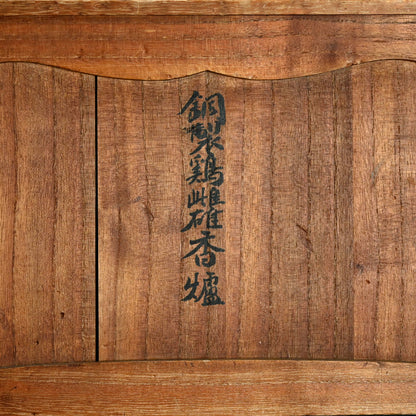 銅製鶏雌雄香爐